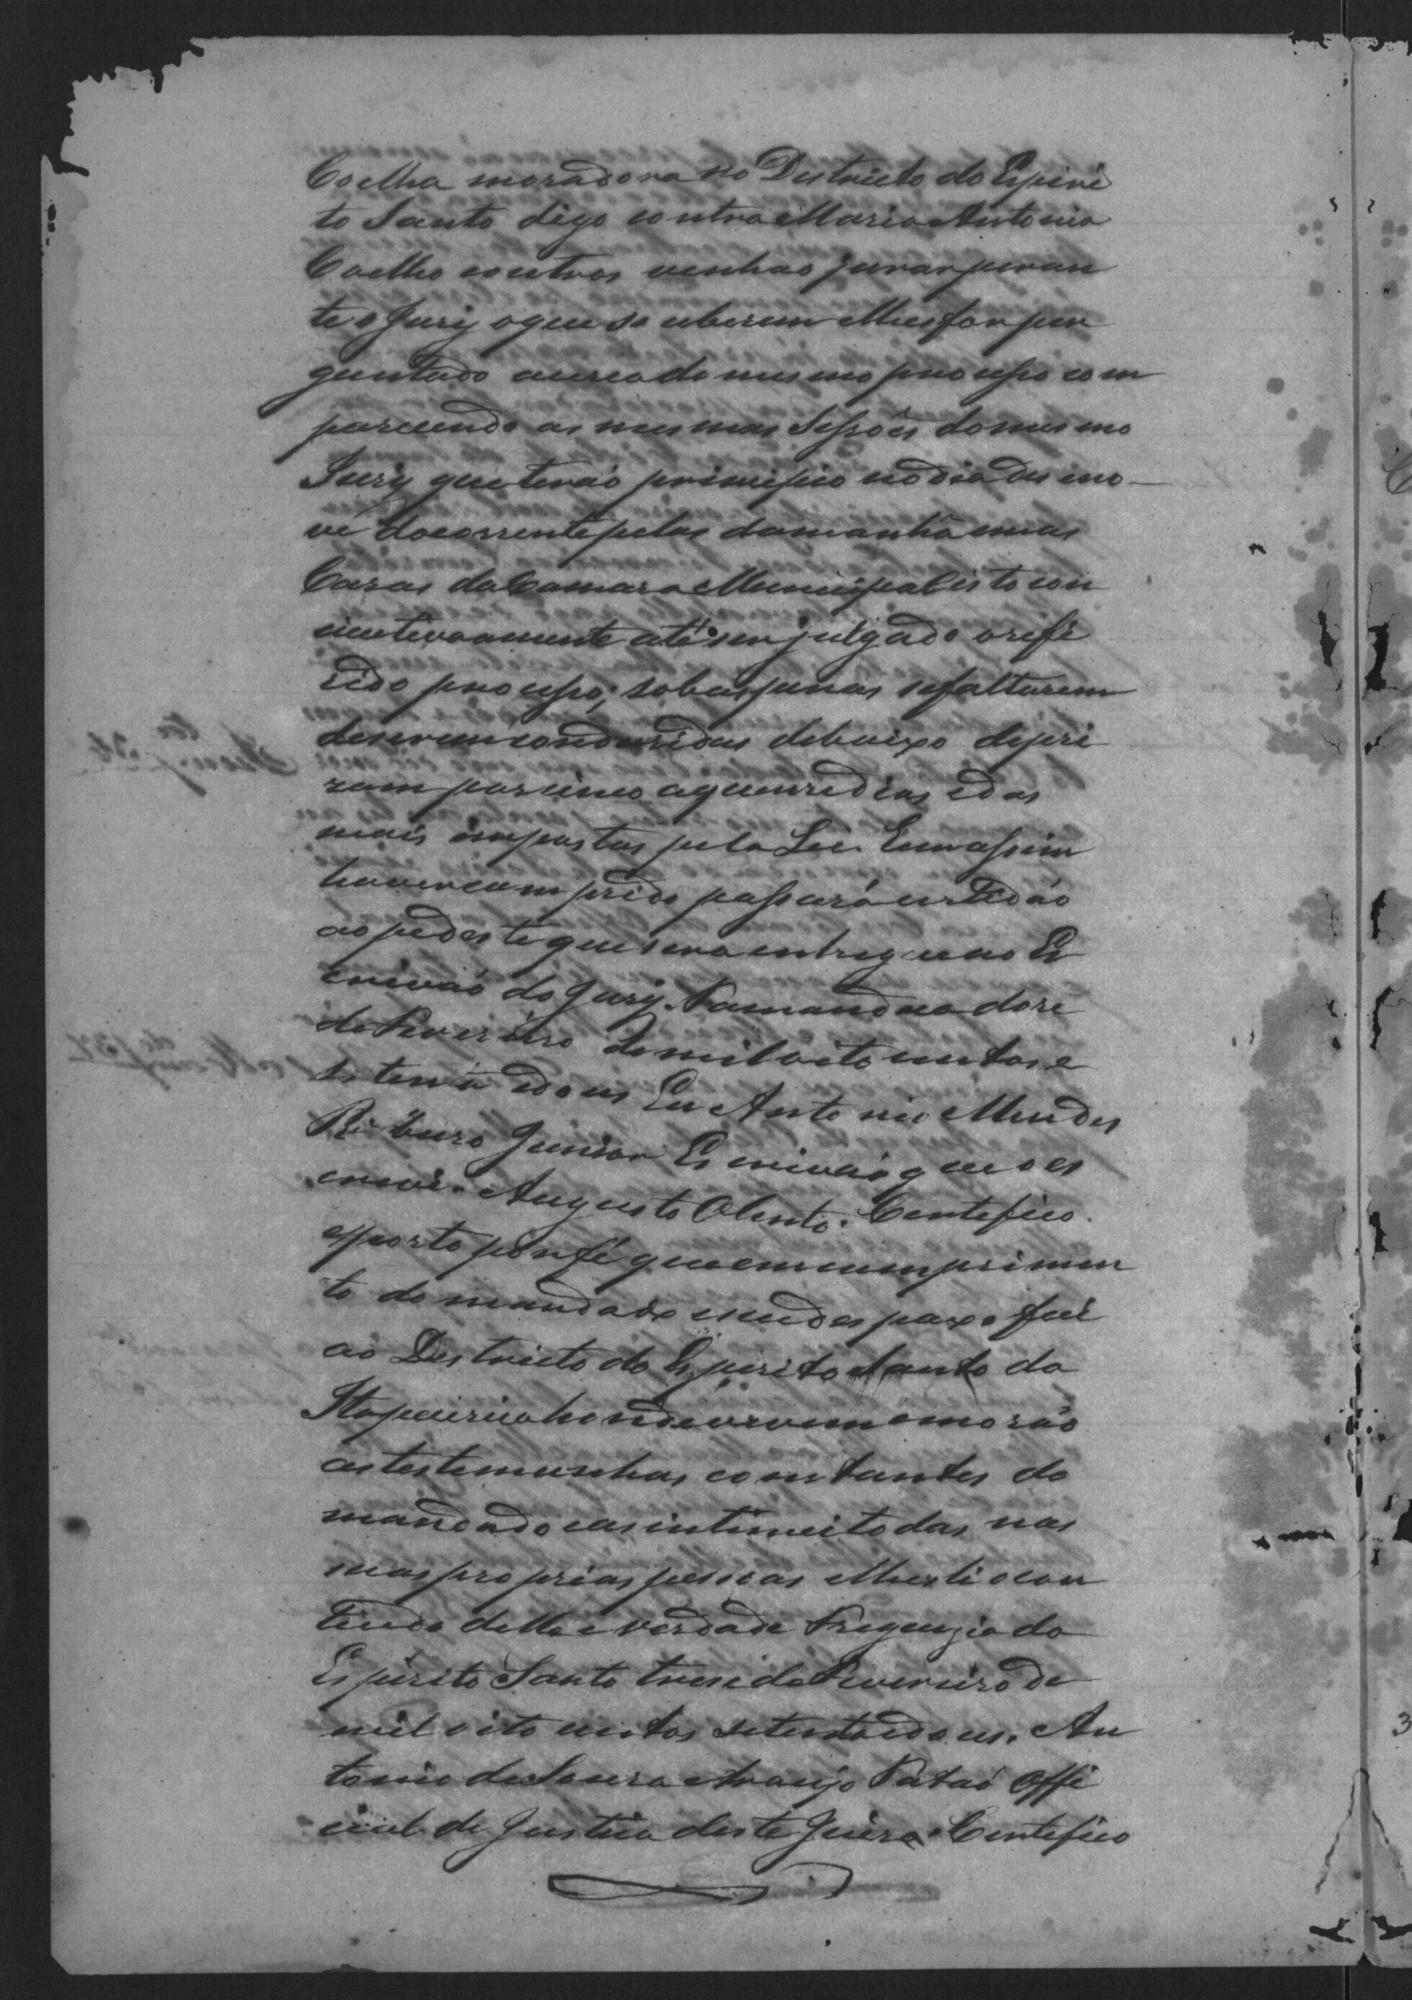 Coelha moradora no Destricto do Espiri
to Santo digo contra Maria Antonia
Coelho e outros venhao jurar peran
te o Jury o que souberem e lhes for per
guntado acerca do mesmo processo com
parecendo as mesmas Sessões do mesmo
Jury que terão principio no dia desino
ve do corrente pelas da manhã nas
Casas da Camara Municipal isto con
icutivamente até ser julgado o refe
rido processo, sob as penas se faltarem
de serem conduzidas debaixo de pri
zam por cinco a quinze dias e das
mais impostas pela Lei. E em assim
haver cumprido passará certidão
ao pé deste que sera entregue ao Es
crivão do Jury. Tamandua doze
de Fevereiro de mil oito centos e
setenta e dous Eu Antonio Mendes
Ribeiro Junior Escrivão que o es
crevi. Augusto Olinto. Certefico
e porto por fé que em cumprimen
to do mandado
ao Destricto do Espirito Santo da
Itapecirica honde morão
as testemunhas constantes do
mandado e as intimei todas nas
suas proprias pessoas e lhes li o con
tiudo delle e verdade Fregueizia do
Espirito Santo treze de Fevereiro de
mil oito centos setenta e dous. An
tonio de Souza Araujo Patao Offi
cial de Justiça deste Juizo. Certefico